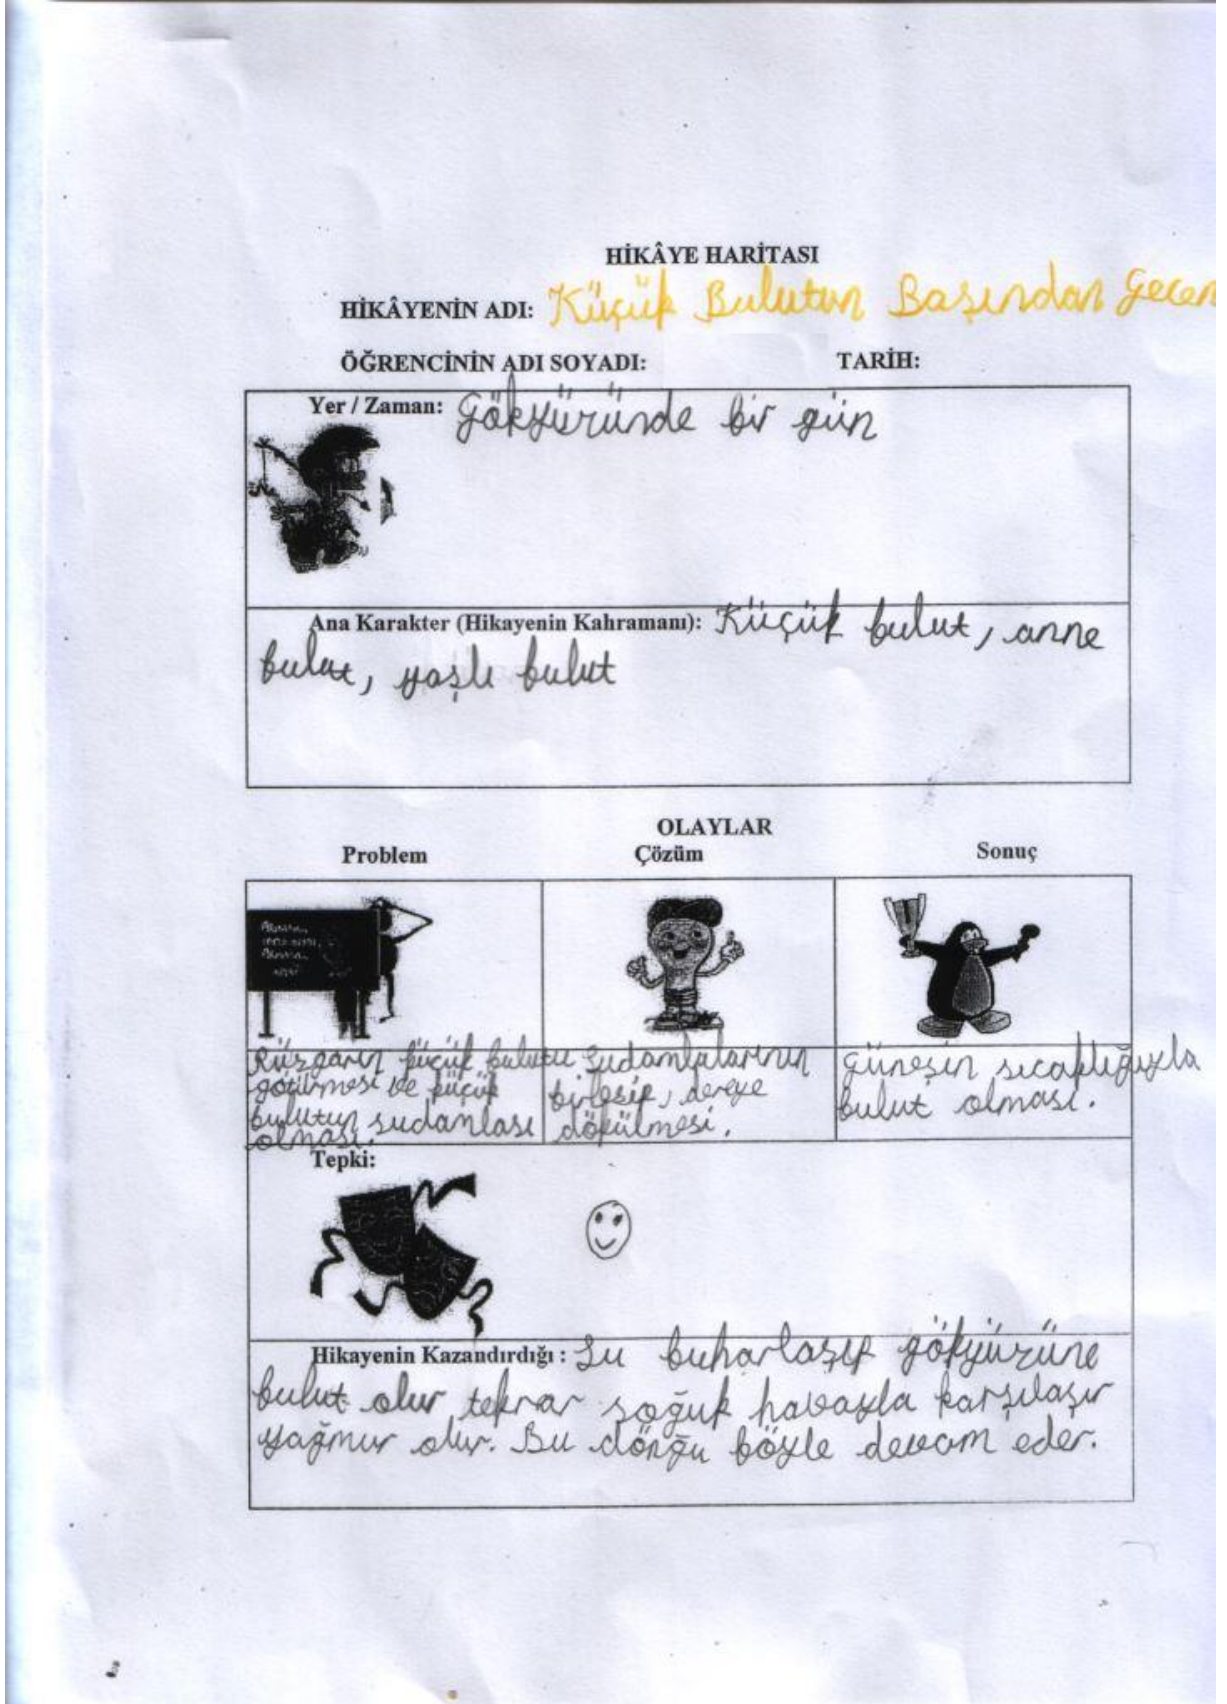 HİKÂYE HARİTASI
HİKÂYENİN ADI: Küçük Bulutun Başından Geçen
ÖĞRENCİNİN ADI SOYADI: TARİH:
Yer / Zaman: Gökyüzünde bir gün
Ana Karakter (Hikayenin Kahramanı): Küçük bulut, anne
bulut, yaşlı bulut
OLAYLAR
Problem Çözüm Sonuç
Rüzgarın küçük bulutu
götürmesi ve küçük
bulutun sudamlası
olması.
Sudamlalarının
birleşip, dereye
dökülmesi.
Güneşin sıcaklığıyla
bulut olması.
Tepki:
Hikayenin Kazandırdığı : Su buharlaşıp gökyüzüne
bulut olur tekrar soğuk havayla karşılaşır
yağmur olur. Bu döngu böyle devam eder.